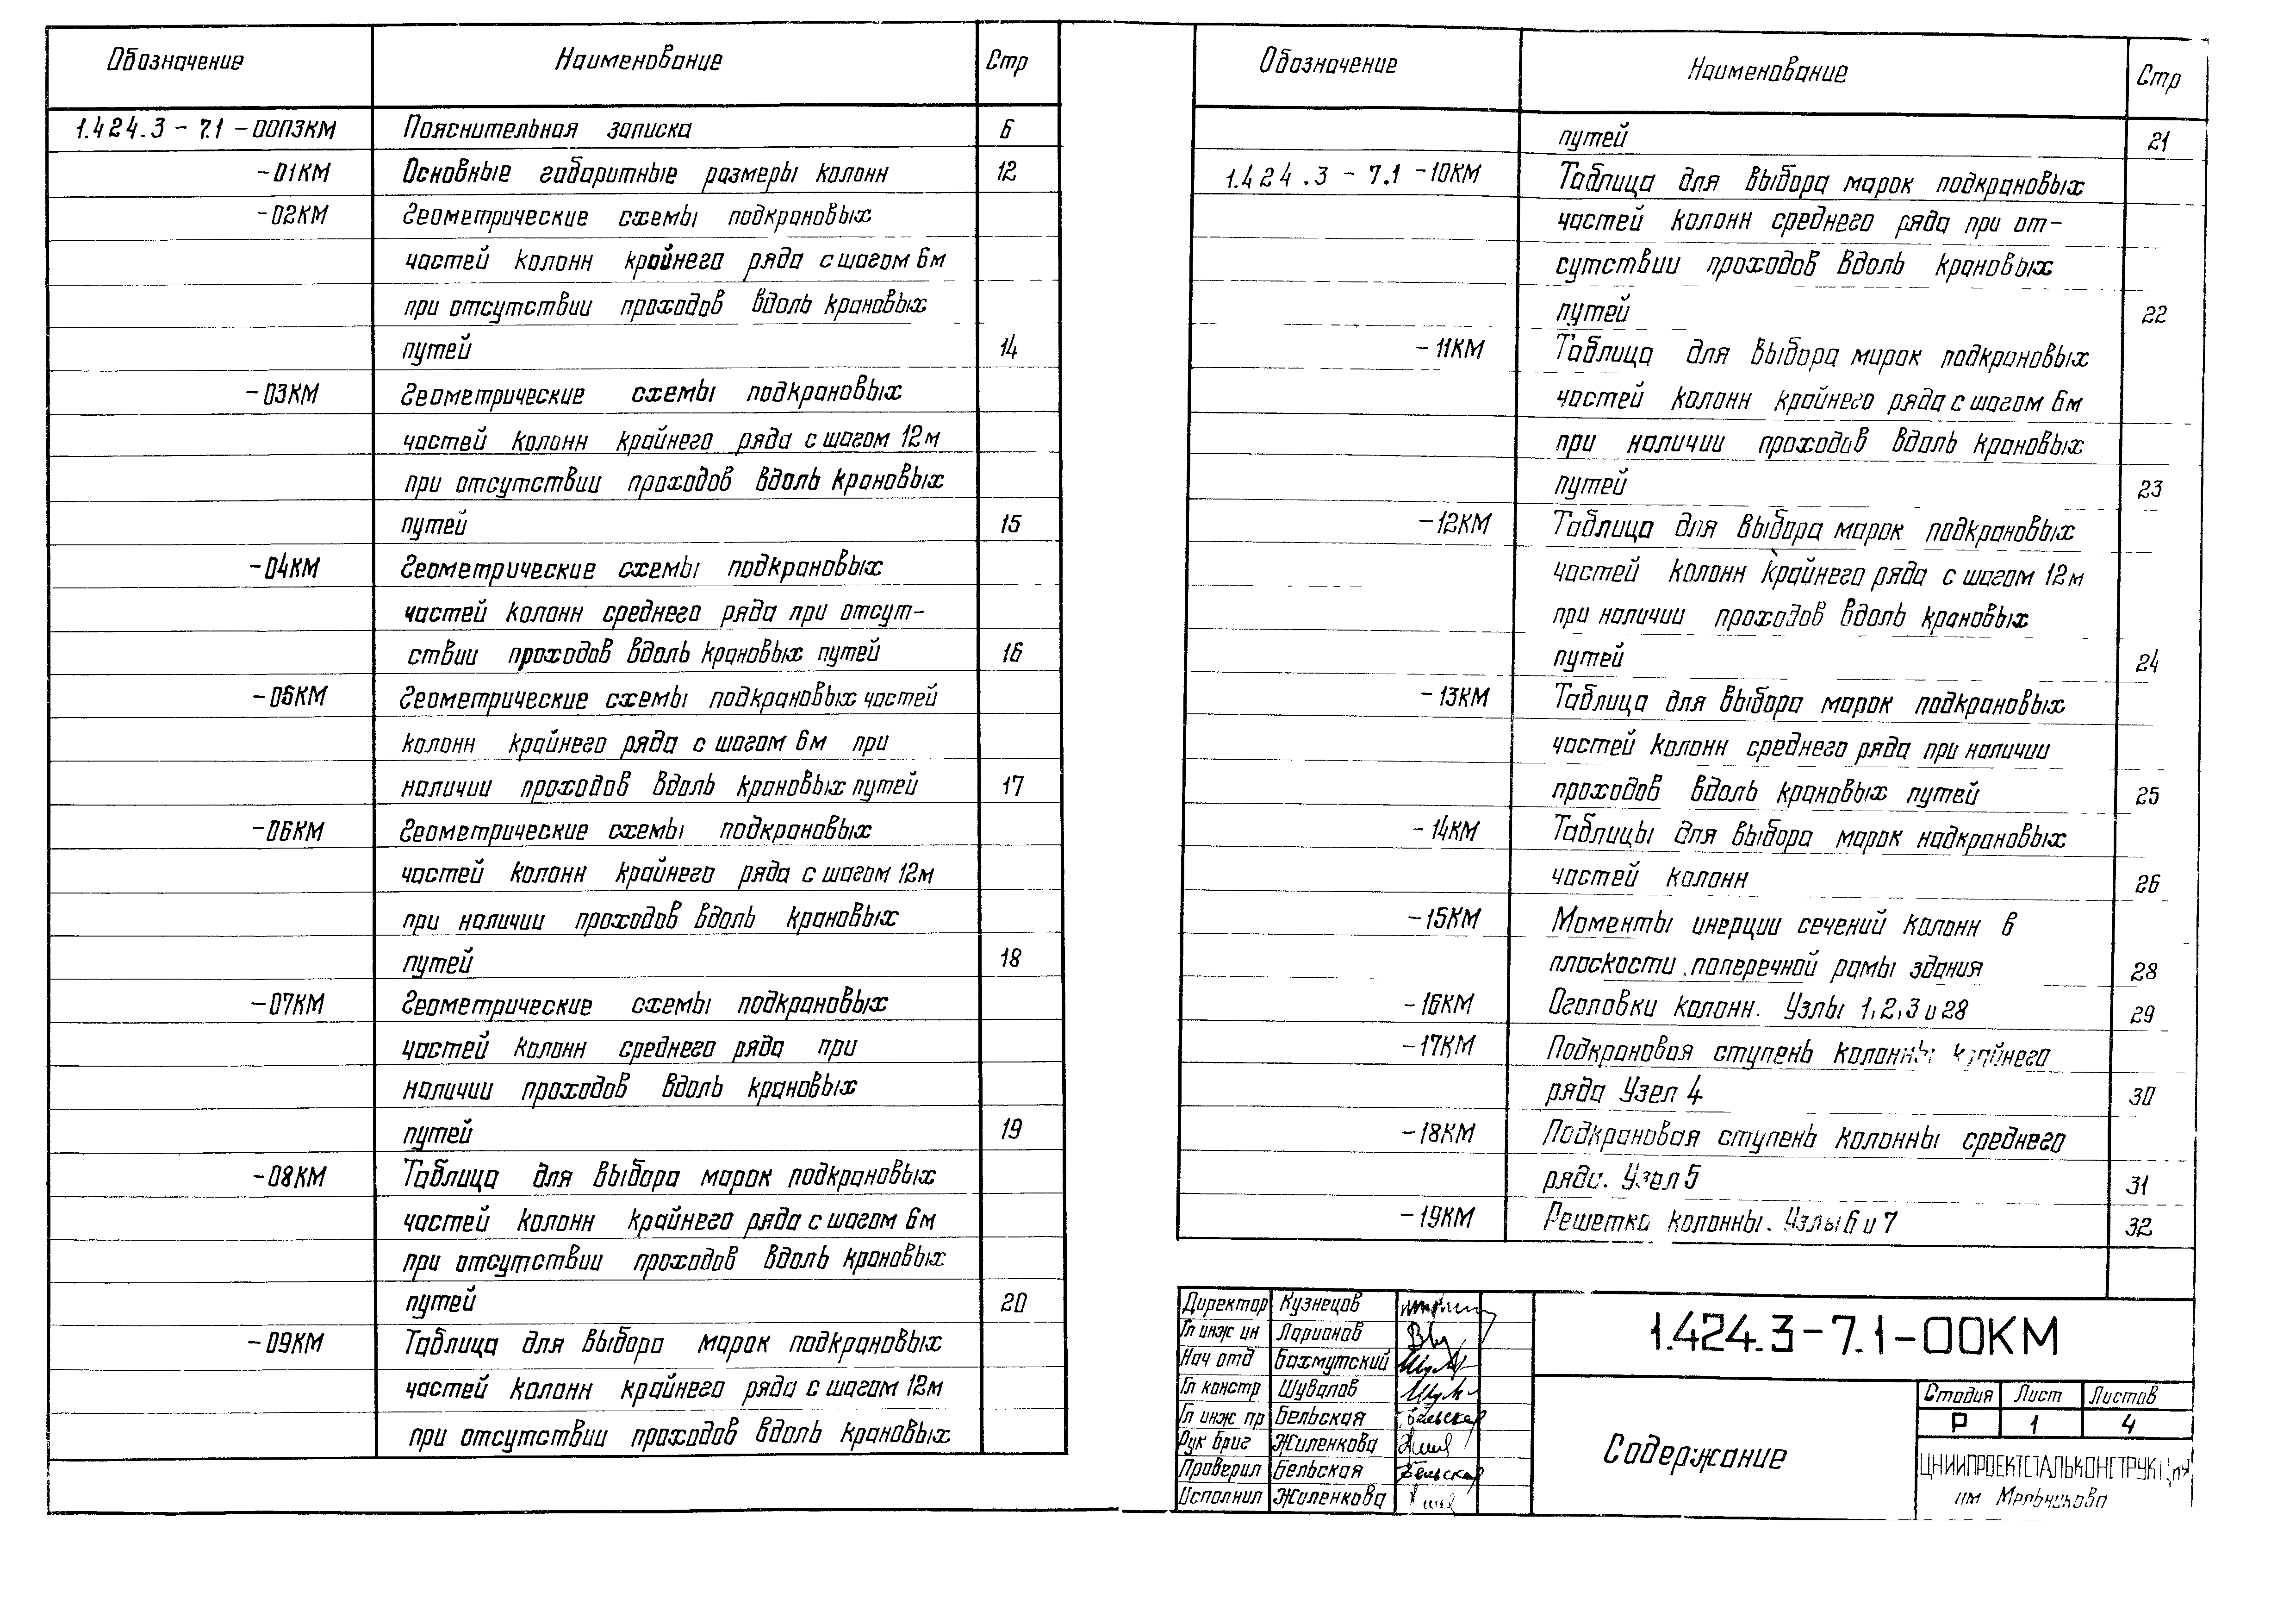 Обозначение Наименование Стр
1.424.3-7.1-00ПЗКМ Пояснительная записка 6
-01КМ Основные габаритные размеры колонн 12
-02КМ Геометрические схемы подкрановых
частей колонн крайнего ряда с шагом 6м
при отсутствии проходов вдоль крановых
путей 14
-03КМ Геометрические схемы подкрановых
частей колонн крайнего ряда с шагом 12м
при отсутствии проходов вдоль крановых
путей 15
-04КМ Геометрические схемы подкрановых
частей колонн среднего ряда при отсут-
ствии проходов вдоль крановых путей 16
-05КМ Геометрические схемы подкрановых частей
колонн крайнего ряда с шагом 6м при
наличии проходов вдоль крановых путей 17
-06КМ Геометрические схемы подкрановых
частей колонн крайнего ряда с шагом 12м
при наличии проходов вдоль крановых
путей 18
-07КМ Геометрические схемы подкрановых
частей колонн среднего ряда при
наличии проходов вдоль крановых
путей 19
-08КМ Таблица для выбора марок подкрановых
частей колонн крайнего ряда с шагом 6м
при отсутствии проходов вдоль крановых
путей 20
-09КМ Таблица для выбора марок подкрановых
частей колонн крайнего ряда с шагом 12м
при отсутствии проходов вдоль крановых
Обозначение Наименование Стр
путей 21
1.424.3-7.1-10КМ Таблица для выбора марок подкрановых
частей колонн среднего ряда при от-
сутствии проходов вдоль крановых
путей 22
-11КМ Таблица для выбора марок подкрановых
частей колонн крайнего ряда с шагом 6м
при наличии проходов вдоль крановых
путей 23
-12КМ Таблица для выбора марок подкрановых
частей колонн крайнего ряда с шагом 12м
при наличии проходов вдоль крановых
путей 24
-13КМ Таблица для выбора марок подкрановых
частей колонн среднего ряда при наличии
проходов вдоль крановых путей 25
-14КМ Таблицы для выбора марок надкрановых
частей колонн 26
-15КМ Моменты инерции сечений колонн в
плоскости поперечной рамы здания 28
-16КМ Оголовки колонн. Узлы 1,2,3 и 28 29
-17КМ Подкрановая ступень колонны крайнего
ряда Узел 4 30
-18КМ Подкрановая ступень колонны среднего
ряда. Узел 5 31
-19КМ Решетка колонны. Узлы 6 и 7 32
Директор Кузнецов
Гл инж ин Ларионов
Нач отд Бахмутский
Гл констр Шувалов
Гл инж пр Бельская Бельская
Рук бриг Жиленкова
Проверил Бельская Бельская
Исполнил Жиленкова
1.424.3-7.1-00КМ
Содержание
Стадия Лист Листов
Р 1 4
ЦНИИПРОЕКТСТАЛЬКОНСТРУКЦИЯ
им Мельникова